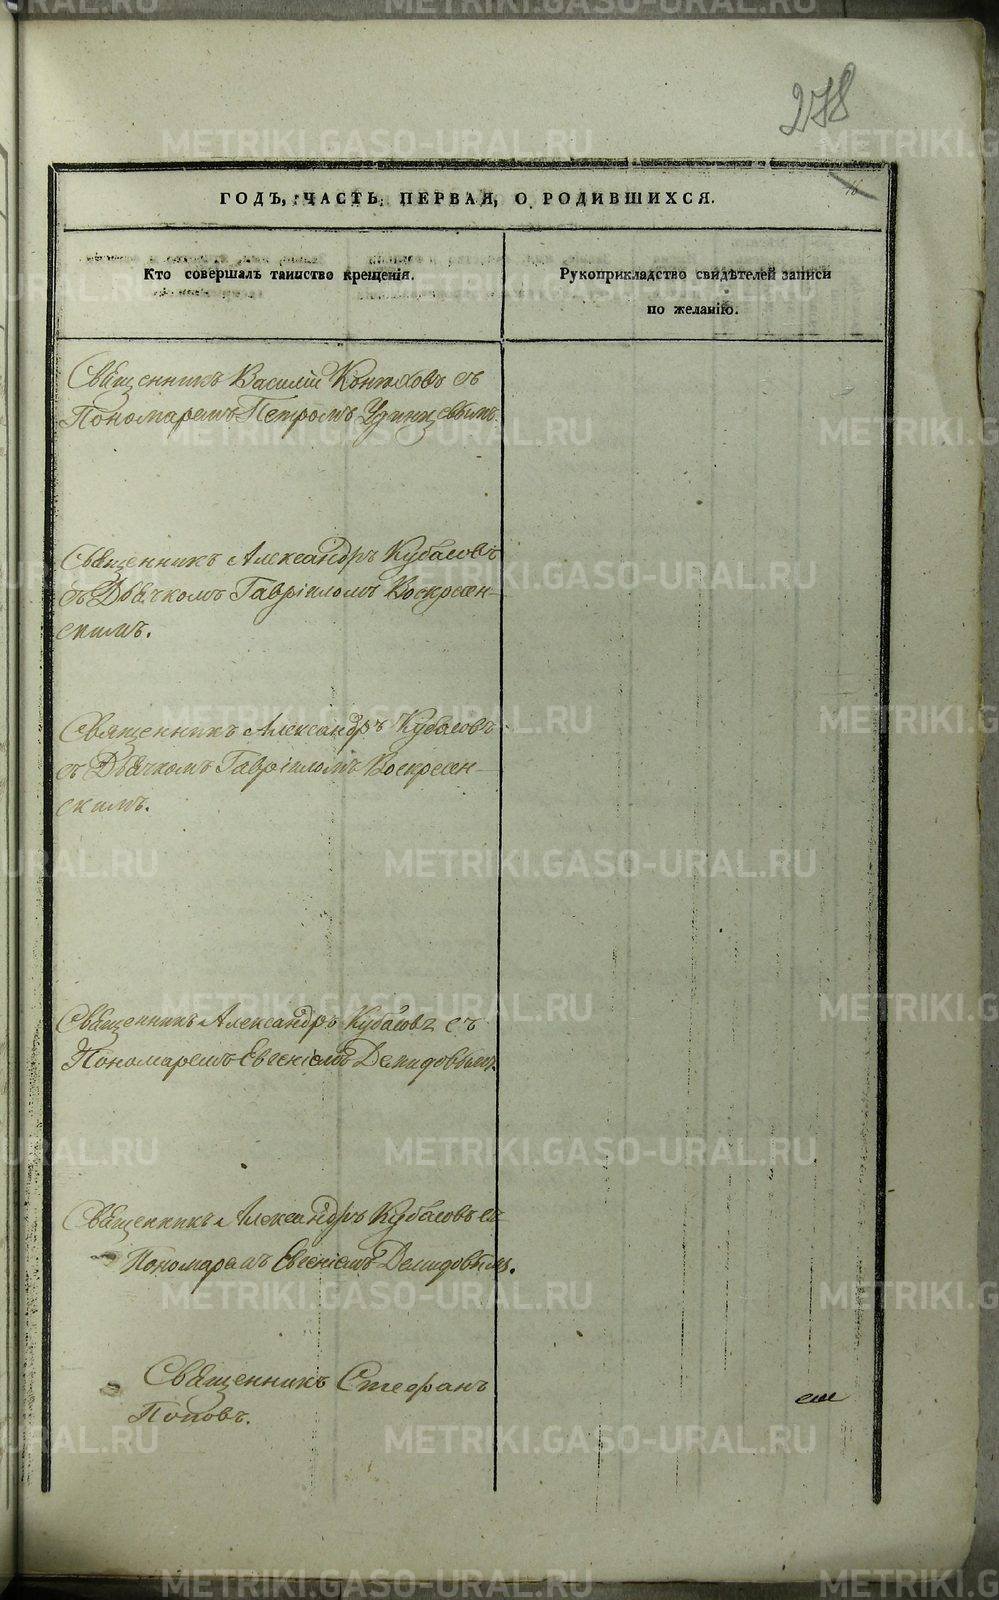 278
16
ГОДЪ, ЧАСТЬ ПЕРВАЯ, О РОДИВШИХСЯ.
Кто совершалъ таинство крещенія.
Рукоприкладство свидѣтелей записи
по желанію.
Священникъ Василій Конюховъ съ
Пономаремъ Петромъ
Священникъ Александръ Кубасовъ
съ Дьячкомъ Гавріиломъ Воскресен-
скимъ.
Священникъ Александръ Кубасовъ
съ Дьячкомъ Гавріиломъ Воскресен-
скимъ.
Священникъ Александръ Кубасовъ съ
Пономаремъ Евгеніемъ Демидовымъ.
Священникъ Александръ Кубасовъ съ
Пономаремъ Евгеніемъ Демидовымъ.
Священникъ Стефанъ
Поповъ.
METRIKI.GASO-URAL.RU